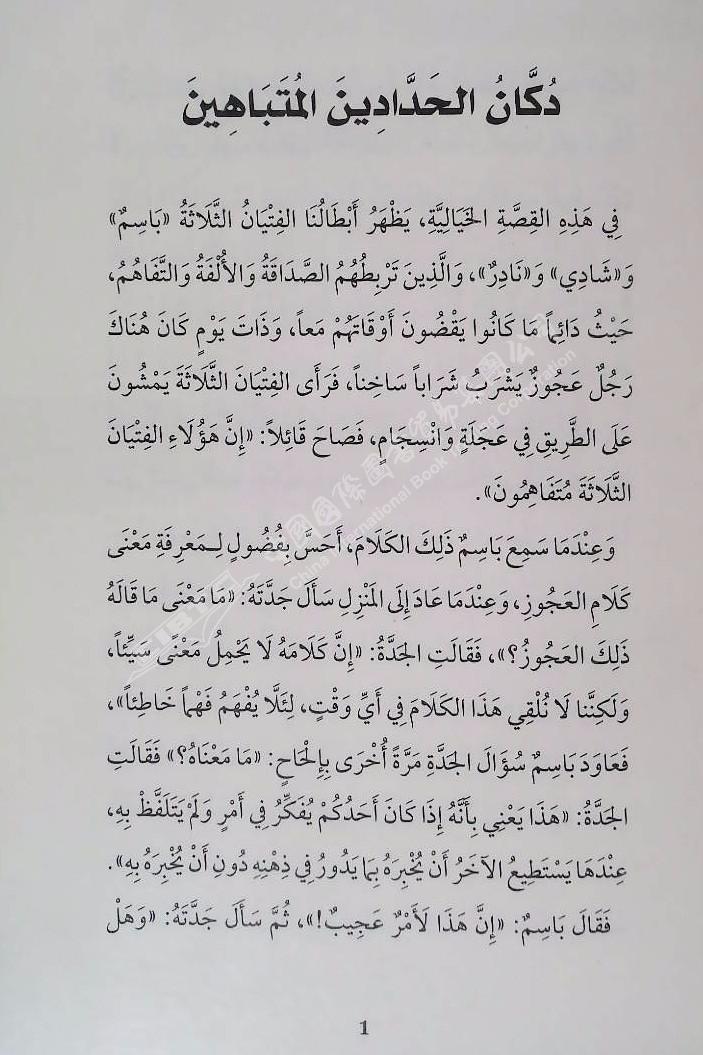 دُكَّانُ الحَدَّادِينَ المُتَبَاهِينَ
فِي هَذِهِ القِصَّةِ الخَيَالِيَّةِ، يَظْهَرُ أَبْطَالُنَا الفِتْيَانُ الثَّلَاثَةُ «بَاسِمٌ»
وَ«شَادِي» وَ«نَادِرٌ»، وَالَّذِينَ تَرْبِطُهُمُ الصَّدَاقَةُ وَالأُلْفَةُ وَالتَّفَاهُمُ،
حَيْثُ دَائِماً مَا كَانُوا يَقْضُونَ أَوْقَاتَهُمْ مَعاً، وَذَاتَ يَوْمٍ كَانَ هُنَاكَ
رَجُلٌ عَجُوزٌ يَشْرَبُ شَرَاباً سَاخِناً، فَرَأَى الفِتْيَانَ الثَّلَاثَةَ يَمْشُونَ
عَلَى الطَّرِيقِ فِي عَجَلَةٍ وَانْسِجَامٍ، فَصَاحَ قَائِلاً: «إِنَّ هَؤُلَاءِ الفِتْيَانَ
الثَّلَاثَةَ مُتَفَاهِمُونَ».
وَعِنْدَمَا سَمِعَ بَاسِمٌ ذَلِكَ الكَلَامَ، أَحَسَّ بِفُضُولٍ لِـمَعْرِفَةِ مَعْنَى
كَلَامِ العَجُوزِ، وَعِنْدَمَا عَادَ إِلَى المَنْزِلِ سَأَلَ جَدَّتَهُ: «مَا مَعْنَى مَا قَالَهُ
ذَلِكَ العَجُوزُ؟»، فَقَالَتِ الجَدَّةُ: «إِنَّ كَلَامَهُ لَا يَحْمِلُ مَعْنًى سَيِّئاً،
وَلَكِنَّنَا لَا نُلْقِي هَذَا الكَلَامَ فِي أَيِّ وَقْتٍ، لِئَلَّا يُفْهَمُ فَهْماً خَاطِئاً»،
فَعَاوَدَ بَاسِمٌ سُؤَالَ الجَدَّةِ مَرَّةً أُخْرَى بِإِلْحَاحٍ: «مَا مَعْنَاهُ؟» فَقَالَتِ
الجَدَّةُ: «هَذَا يَعْنِي بِأَنَّهُ إِذَا كَانَ أَحَدُكُمْ يُفَكِّرُ فِي أَمْرٍ وَلَمْ يَتَلَفَّظْ بِهِ،
عِنْدَهَا يَسْتَطِيعُ الآخَرُ أَنْ يُخْبِرَهُ بِمَا يَدُورُ فِي ذِهْنِهِ دُونِ أَنْ يُخْبِرَهُ بِهِ».
فَقَالَ بَاسِمٌ: «إِنَّ هَذَا لَأَمْرٌ عَجِيبٌ!»، ثُمَّ سَأَلَ جَدَّتَهُ: «وَهَلْ
1